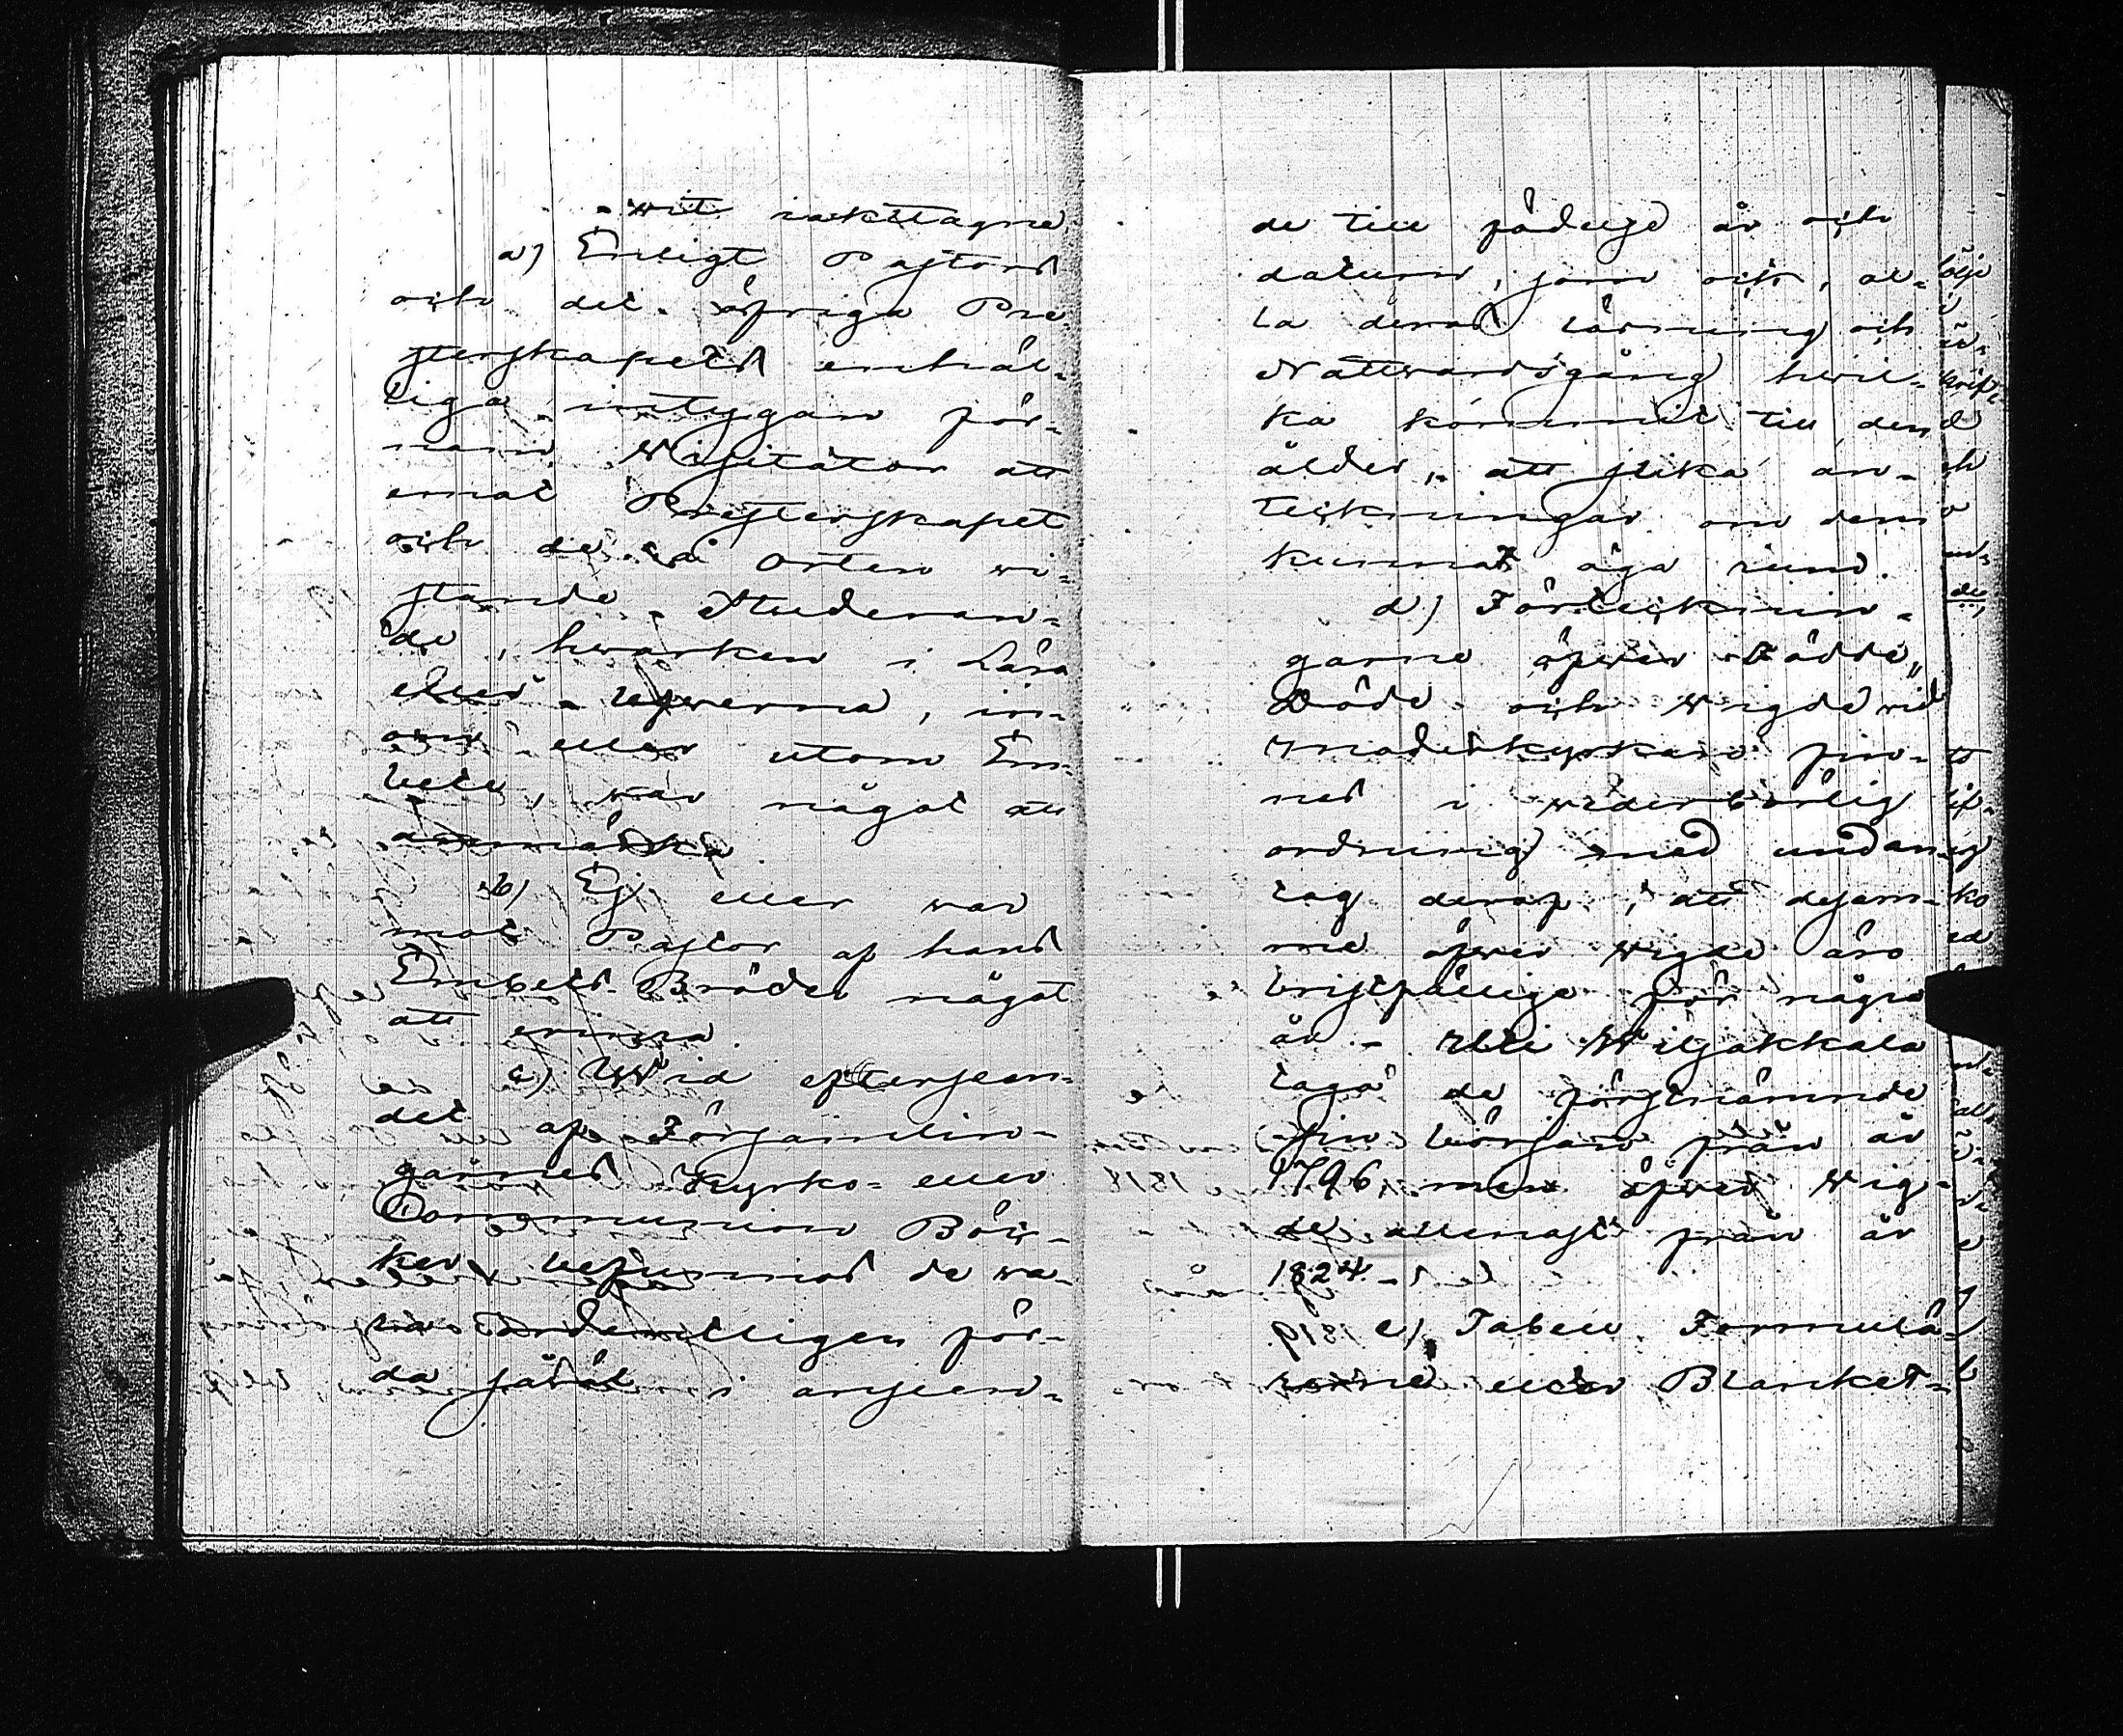 wit iakttagne
a) Enligt Pastors
och det öfriga Pre
sterskapets enhäl-
liga intygan för-
mann Visitator att
emot Presterskapet
och de å orten wi-
stande Studeran-
de, hwarken i Lära
eller Lefwerna, in-
om eller utom Em-
bete, war något att
anmärka
b) Ej eller war
mot Pastor af hans
Embets Bröder något
att erinra
c) Wid efterseen-
det af Församlin-
garnes Kyrko- eller
Communion Böc-
ker befunnos de wa-
ra ordentligen för-
da såwäl i anseen-
de till födelse år och
datum, som och, al-
la deras läsning och
Nattwardsgång hwil-
ka kommit till den
ålder, att slika an-
teckningar om dem
kunnat äga rum.
d) Förtecknin-
garne öfwer Födde,
Döde och Wigde wid
Moderkyrkan fin-
nes i wederbörlig
ordning med undan-
tag deraf, att desam-
me öfwer Wigde äro
bristfällige för några
år - Uti Wiljakkala
taga de förstnämnde
sin början från år
1796 men öfwer Wig-
de allenast från år
1824.-
e) Tabell Formulä-
rerne eller Blanket-